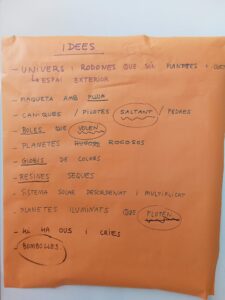 IDEES
- UNIVERS I RODONES QUE SÓN PLANETES I
↳ ESPAI EXTERIOR
- MAQUETA AMB PLUJA
- CANIQUES / PILOTES SALTANT / PEDRES
- BOLES QUE VOLEN
- PLANETES RUGOSOS
- GLOBUS DE COLORS
- RESINES SEQUES
- SISTEMA SOLAR DESORDENAT I MULTIPLICAT
- PLANETES ILUMINATS QUE FLOTEN
- HI HA OUS I CRIES
- BOMBOLLES